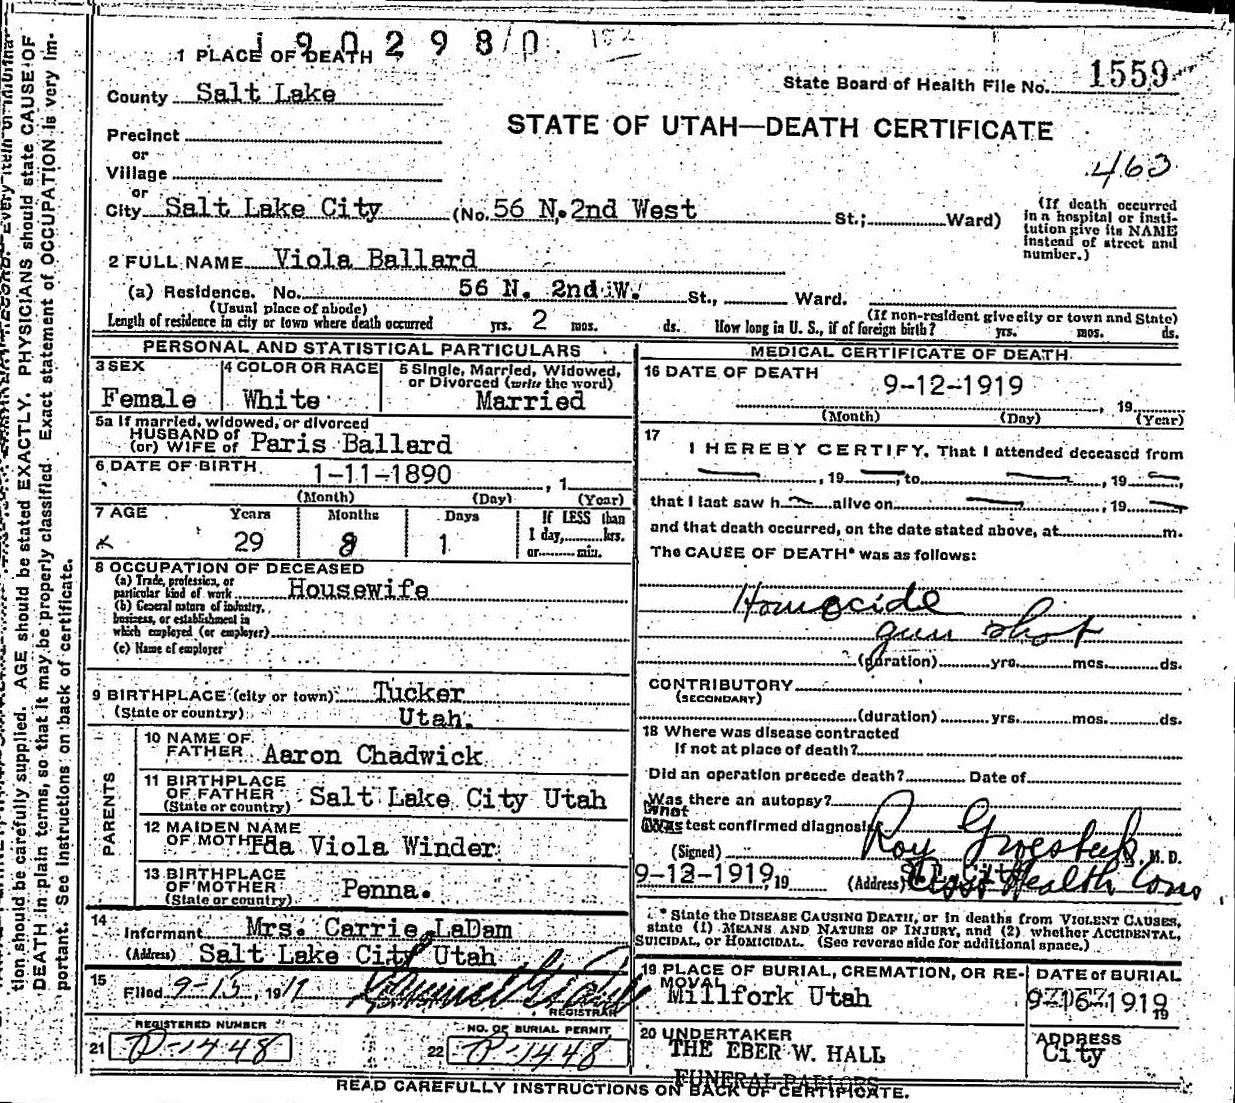 1902980
1 PLACE OF DEATH
County Salt Lake
State Board of Health File No. 1559
STATE OF UTAH—DEATH CERTIFICATE
463
Precinct
or
Village
or
City Salt Lake City (No. 56 N. 2nd West St.; Ward)
(If death occurred in a hospital or insti-
tution give its NAME
instead of street and
number.)
2 FULL NAME Viola Ballard
(a) Residence. No. 56 N. 2nd W. St., Ward.
(Usual place of abode) (If non-resident give city or town and State)
Length of residence in city or town where death occurred yrs. 2 mos. ds. How long in U. S., if of foreign birth? yrs. mos. ds.
PERSONAL AND STATISTICAL PARTICULARS
3 SEX
Female
4 COLOR OR RACE
White
5 Single, Married, Widowed,
or Divorced (write the word)
Married
5a If married, widowed, or divorced
HUSBAND of
(or) WIFE of Paris Ballard
6 DATE OF BIRTH 1-11-1890, 1
(Month) (Day) (Year)
7 AGE Years Months Days If LESS than
29 8 1 1 day, hrs.
or min.
8 OCCUPATION OF DECEASED
(a) Trade, profession, or
particular kind of work Housewife
(b) General nature of industry,
business, or establishment in
which employed (or employer)
(c) Name of employer
9 BIRTHPLACE (city or town) Tucker
(State or country) Utah.
PARENTS
10 NAME OF
FATHER Aaron Chadwick
11 BIRTHPLACE
OF FATHER Salt Lake City Utah
(State or country)
12 MAIDEN NAME
OF MOTHER Ida Viola Winder
13 BIRTHPLACE
OF MOTHER Penna.
(State or country)
14
Informant Mrs. Carrie LaDam
(Address) Salt Lake City Utah
15
Filed 9-15, 1919
REGISTRAR
REGISTERED NUMBER
21 P-1448
NO. OF BURIAL PERMIT
22 P-1448
MEDICAL CERTIFICATE OF DEATH
16 DATE OF DEATH
9-12-1919, 19
(Month) (Day) (Year)
17
I HEREBY CERTIFY, That I attended deceased from
, 19 , to , 19 ,
that I last saw h alive on , 19
and that death occurred, on the date stated above, at m.
The CAUSE OF DEATH* was as follows:
Homocide
gun shot
(duration) yrs. mos. ds.
CONTRIBUTORY
(SECONDARY)
(duration) yrs. mos. ds.
18 Where was disease contracted
If not at place of death?
Did an operation precede death? Date of
Was there an autopsy?
What test confirmed diagnosis
(Signed) Roy Groesbeck, M. D.
9-12-1919, 19 (Address) Asst Health Coms
* State the DISEASE CAUSING DEATH, or in deaths from VIOLENT CAUSES,
state (1) MEANS AND NATURE OF INJURY, and (2) whether ACCIDENTAL,
SUICIDAL, OR HOMICIDAL. (See reverse side for additional space.)
19 PLACE OF BURIAL, CREMATION, OR RE-
MOVAL
Millfork Utah
DATE of BURIAL
9-16-1919
19
20 UNDERTAKER
THE EBER W. HALL
FUNERAL PARLORS
ADDRESS
City
READ CAREFULLY INSTRUCTIONS ON BACK OF CERTIFICATE.
tion should be carefully supplied. AGE should be stated EXACTLY. PHYSICIANS should state CAUSE OF
DEATH in plain terms, so that it may be properly classified. Exact statement of OCCUPATION is very im-
portant. See instructions on back of certificate.